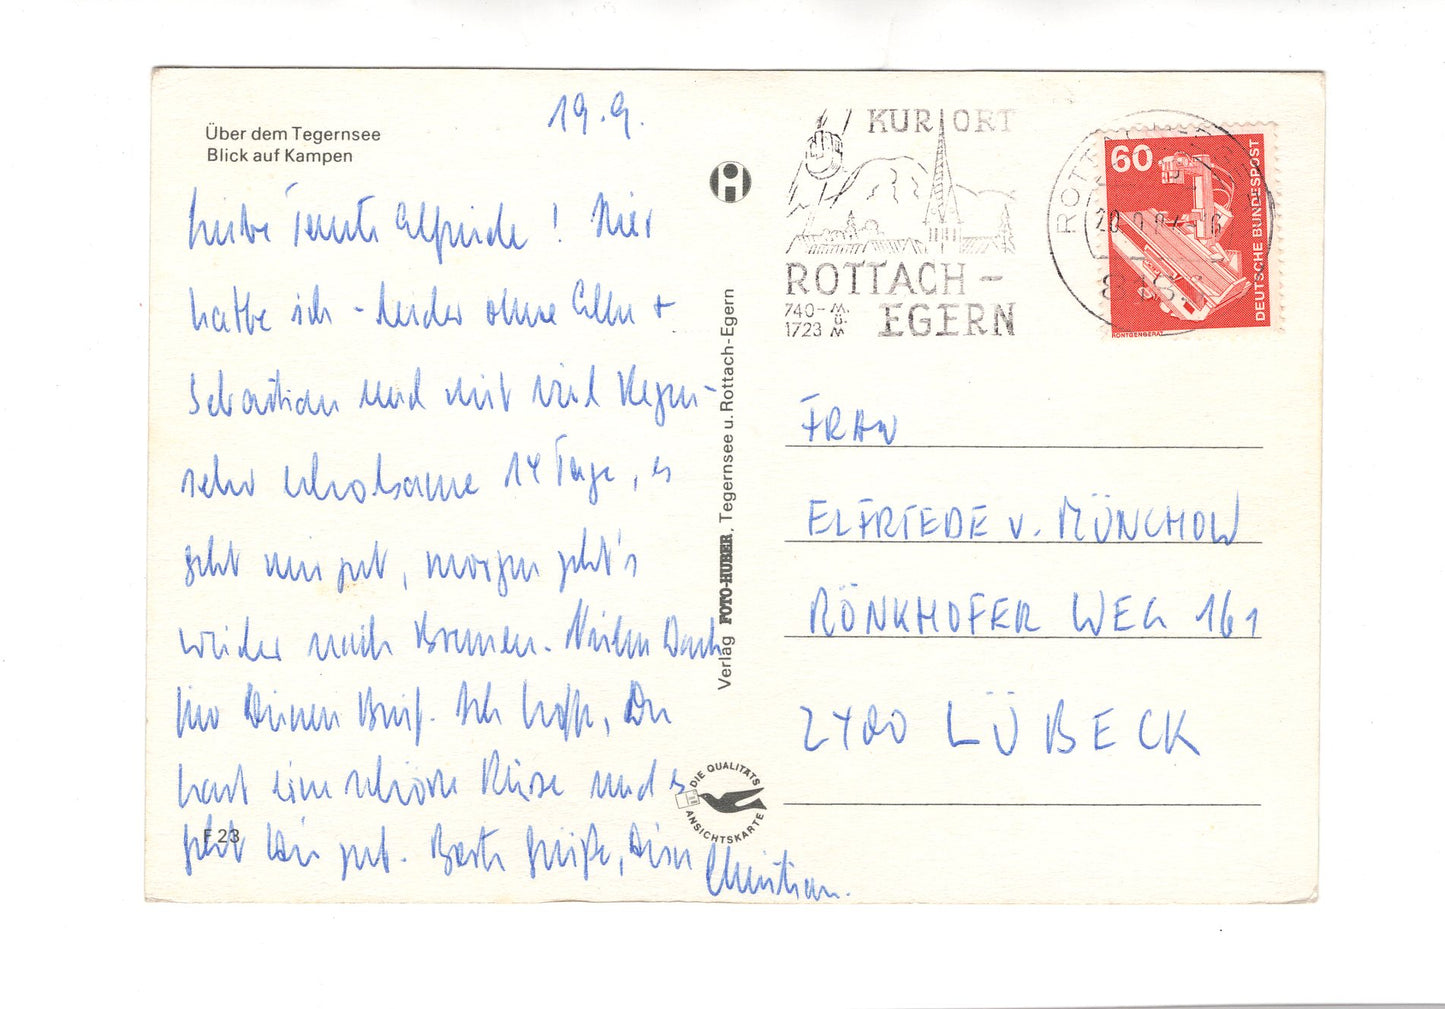 Über dem Tegernsee
Blick auf Kampen
19.9.
Liebe Tante Elfriede! Hier
hatte ich - leider ohne Ellen +
Sebastian und mit viel Regen -
sehr erholsame 14 Tage, es
geht mir gut, morgen geht's
wieder nach Bremen. Vielen Dank
für Deinen Brief. Ich hoffe, Du
hast eine schöne Reise und es
geht Dir gut. Beste Grüße, Dein Christian.
F 23
Verlag FOTO-HUBER, Tegernsee u. Rottach-Egern
DIE QUALITÄTS
ANSICHTSKARTE
KURORT
ROTTACH-
EGERN
740-
1723
ROTTACH
60
DEUTSCHE BUNDESPOST
RÖNTGENGERÄT
FRAU
ELFRIEDE v. MÜNCHOW
RÖNKHOFER WEG 161
2400 LÜBECK